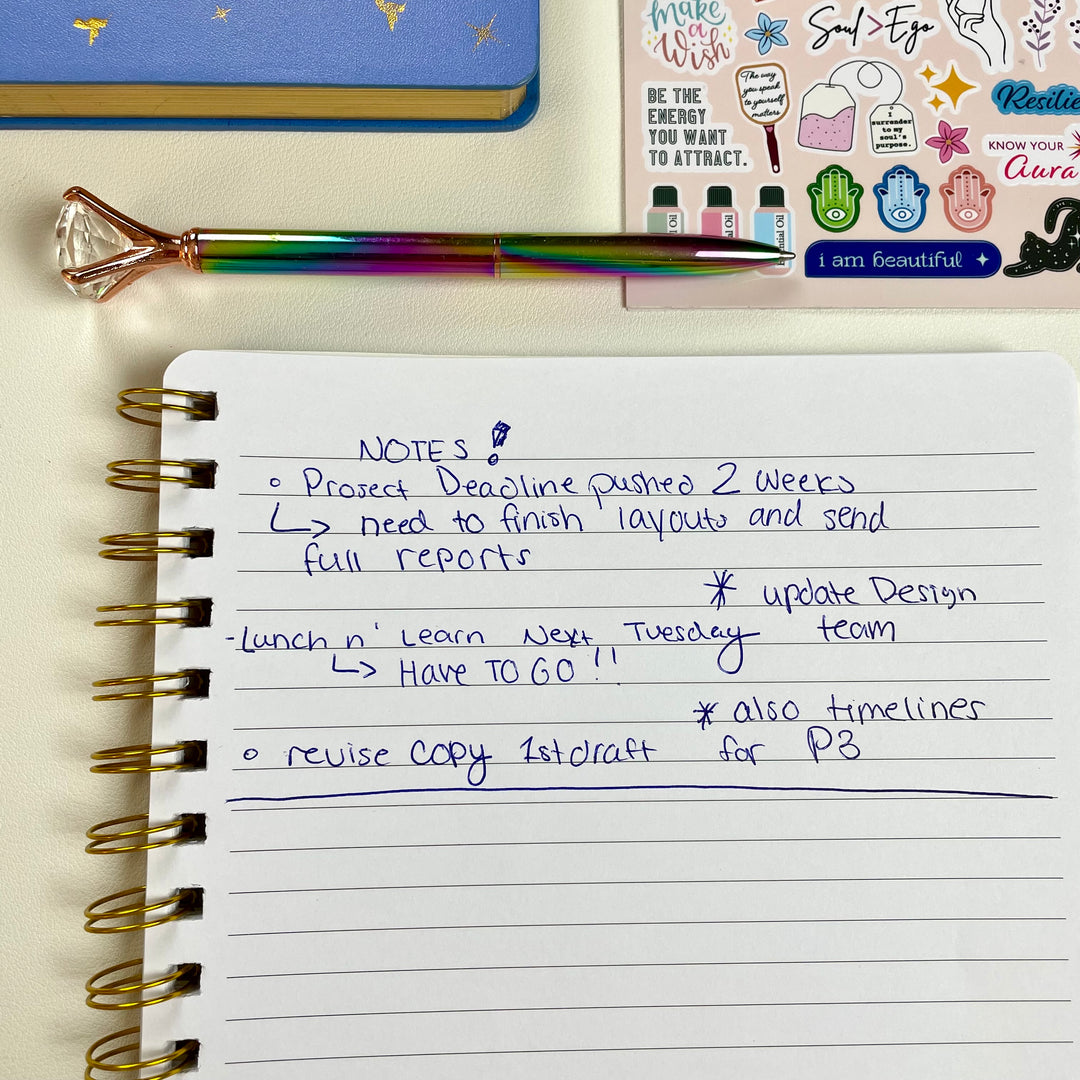 Make
a
Wish
Soul > Ego
BE THE
ENERGY
YOU WANT
TO ATTRACT.
The way
you speak
to yourself
matters
I
surrender
to my
soul's
purpose.
Resilie
KNOW YOUR
Aura
Oil
Oil
ential Oil
i am beautiful
NOTES!
Project Deadline pushed 2 weeks
need to finish layouts and send
full reports
* update Design
team
- Lunch n' Learn Next Tuesday
Have TO GO!!
* also timelines
for P3
revise copy 1st draft